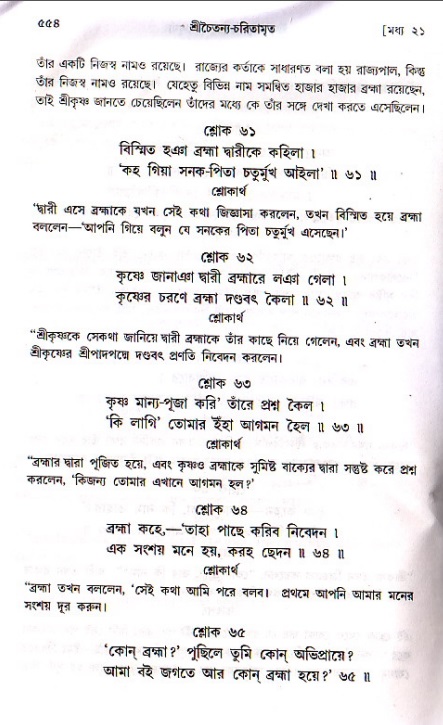 ৫৫৪ শ্রীচৈতন্য-চরিতামৃত [মধ্য ২১
তাঁর একটি নিজস্ব নামও রয়েছে। রাজ্যের কর্তাকে সাধারণত বলা হয় রাজ্যপাল, কিন্তু
তাঁর নিজস্ব নামও রয়েছে। যেহেতু বিভিন্ন নাম সমন্বিত হাজার হাজার ব্রহ্মা রয়েছেন,
তাই শ্রীকৃষ্ণ জানতে চেয়েছিলেন তাঁদের মধ্যে কে তাঁর সঙ্গে দেখা করতে এসেছিলেন।
শ্লোক ৬১
বিস্মিত হঞা ব্রহ্মা দ্বারীকে কহিলা ।
‘কহ গিয়া সনক-পিতা চতুর্মুখ আইলা’ ॥ ৬১ ॥
শ্লোকার্থ
“দ্বারী এসে ব্রহ্মাকে যখন সেই কথা জিজ্ঞাসা করলেন, তখন বিস্মিত হয়ে ব্রহ্মা
বললেন—‘আপনি গিয়ে বলুন যে সনকের পিতা চতুর্মুখ এসেছেন।’
শ্লোক ৬২
কৃষ্ণে জানাঞা দ্বারী ব্রহ্মারে লঞা গেলা ।
কৃষ্ণের চরণে ব্রহ্মা দণ্ডবৎ কৈলা ॥ ৬২ ॥
শ্লোকার্থ
“শ্রীকৃষ্ণকে সেকথা জানিয়ে দ্বারী ব্রহ্মাকে তাঁর কাছে নিয়ে গেলেন, এবং ব্রহ্মা তখন
শ্রীকৃষ্ণের শ্রীপাদপদ্মে দণ্ডবৎ প্রণতি নিবেদন করলেন।
শ্লোক ৬৩
কৃষ্ণ মান্য-পূজা করি’ তাঁরে প্রশ্ন কৈল ।
‘কি লাগি’ তোমার ইঁহা আগমন হৈল ॥ ৬৩ ॥
শ্লোকার্থ
“ব্রহ্মার দ্বারা পূজিত হয়ে, এবং কৃষ্ণও ব্রহ্মাকে সুমিষ্ট বাক্যের দ্বারা সন্তুষ্ট করে প্রশ্ন
করলেন, ‘কিজন্য তোমার এখানে আগমন হল?’
শ্লোক ৬৪
ব্রহ্মা কহে,—‘তাহা পাছে করিব নিবেদন ।
এক সংশয় মনে হয়, করহ ছেদন ॥ ৬৪ ॥
শ্লোকার্থ
“ব্রহ্মা তখন বললেন, ‘সেই কথা আমি পরে বলব। প্রথমে আপনি আমার মনের
সংশয় দূর করুন।
শ্লোক ৬৫
‘কোন্ ব্রহ্মা?’ পুছিলে তুমি কোন্ অভিপ্রায়ে?
আমা বই জগতে আর কোন্ ব্রহ্মা হয়ে?’ ৬৫ ॥